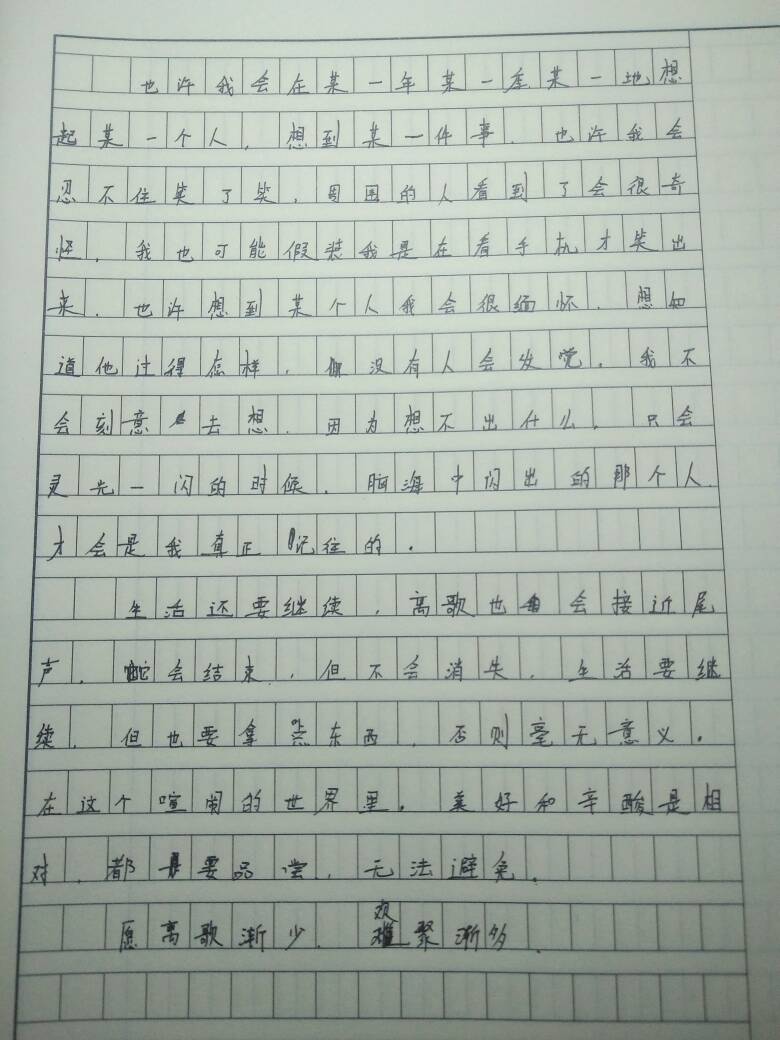 也许我会在某一年某一季某一地想
起某一个人，想到某一件事。也许我会
忍不住笑了笑，周围的人看到了会很奇
怪，我也可能假装我是在看手机才笑出
来。也许想到某个人我会很缅怀，想知
道他过得怎样，但没有人会发觉。我不
会刻意去想，因为想不出什么。只会
灵光一闪的时候，脑海中闪出的那个人
才会是我真正记住的。
生活还要继续，离歌也会接近尾
声，会结束，但不会消失。生活要继
续，但也要拿点东西，否则毫无意义。
在这个喧闹的世界里，美好和辛酸是相
对，都是要品尝，无法避免。
愿离歌渐少，欢聚渐多。